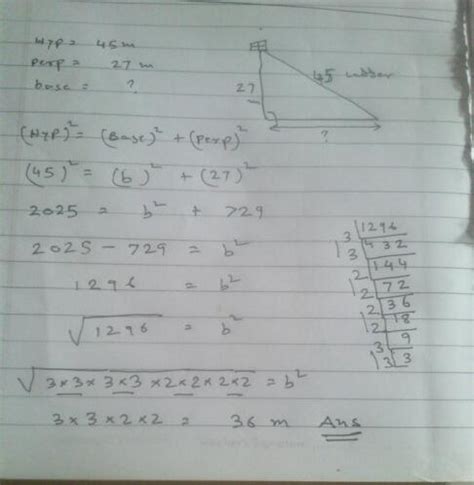 Hyp = 45m
Perp = 27 m
base = ?
27
45 ladder
?
(Hyp)² = (Base)² + (Perp)²
(45)² = (b)² + (27)²
2025 = b² + 729
2025 - 729 = b²
1296 = b²
√1296 = b²
√3×3×3×3×2×2×2×2 = b²
3×3×2×2 = 36 m Ans
3 1296
3 432
2 144
2 72
2 36
2 18
3 9
3 3